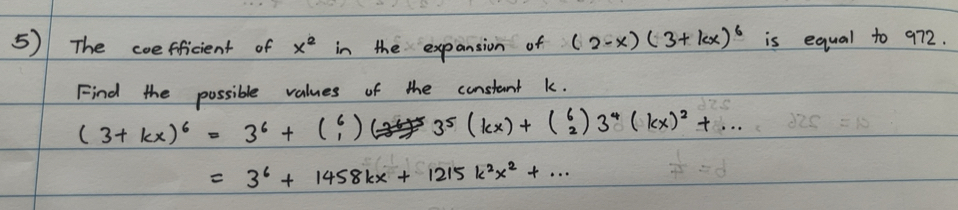 5) The coefficient of x² in the expansion of (2-x)(3+kx)⁶ is equal to 972.
Find the possible values of the constant k.
(3+kx)⁶ = 3⁶ + (6 1) 3⁵ (kx) + (6 2) 3⁴ (kx)² + ...
= 3⁶ + 1458kx + 1215 k²x² + ...